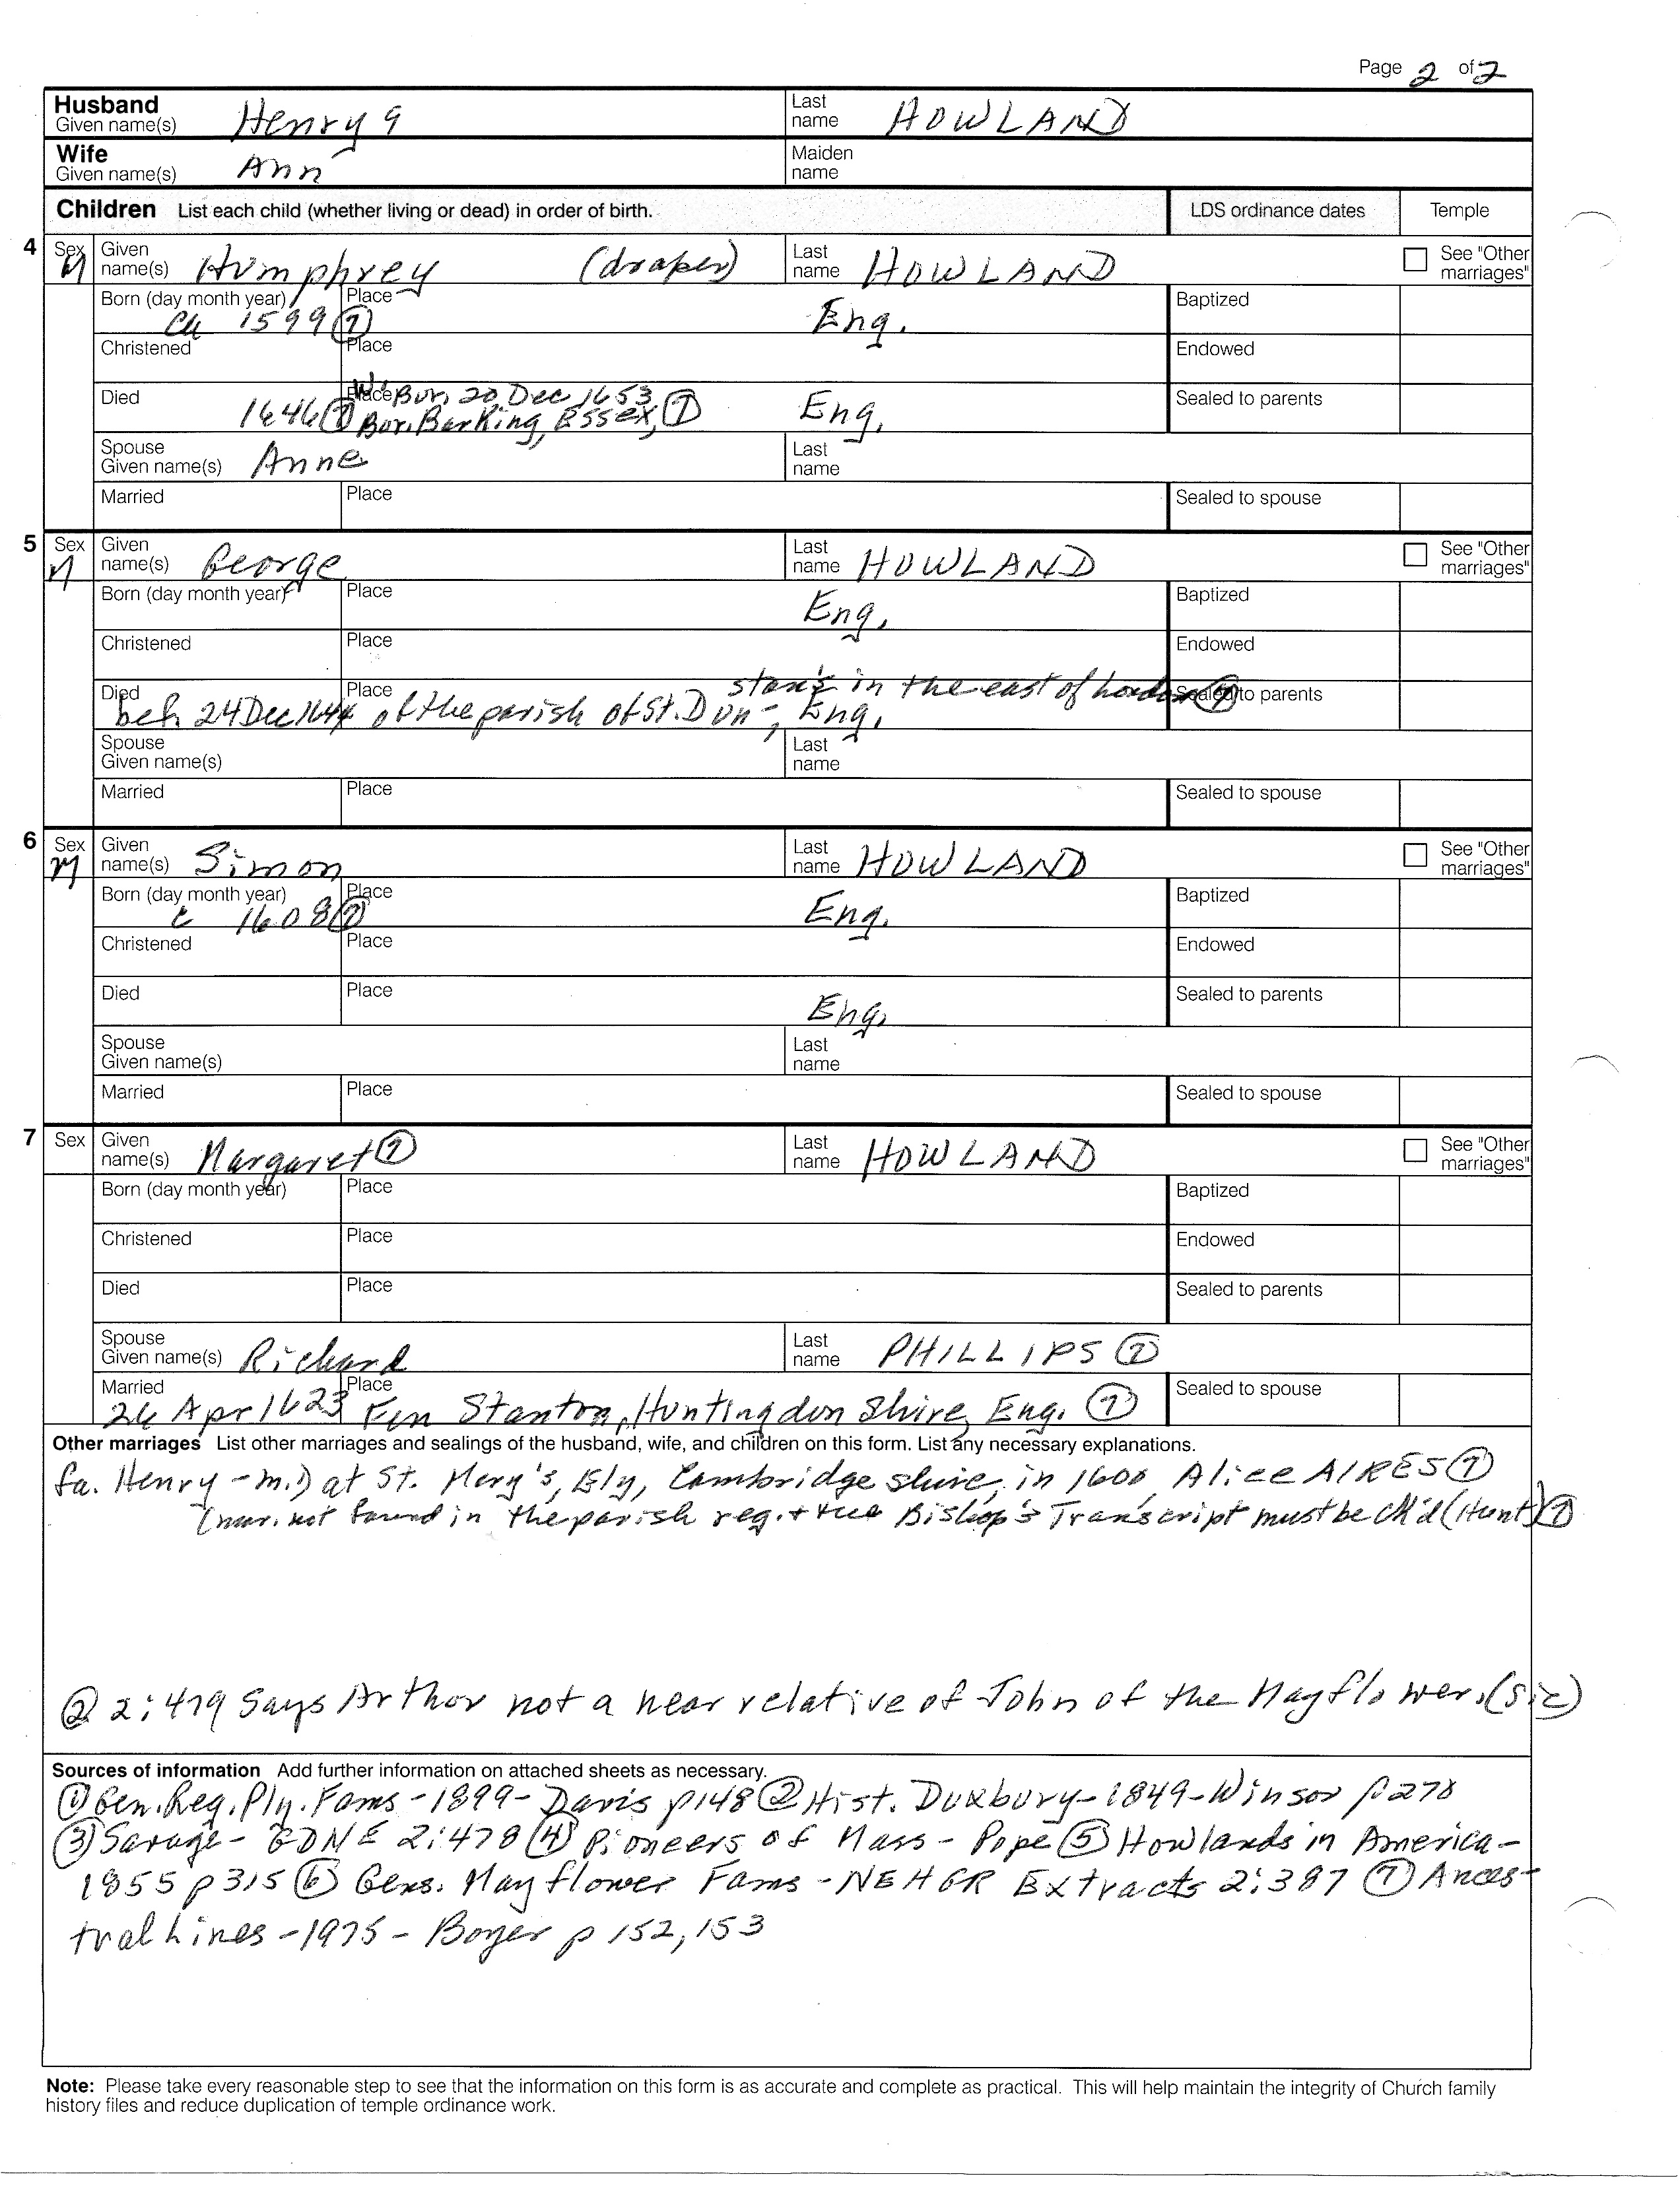 Page 2 of 2
Husband Given name(s) Henry 9 Last name HOWLAND
Wife Given name(s) Ann Maiden name
Children List each child (whether living or dead) in order of birth. LDS ordinance dates Temple
4 Sex M Given name(s) Humphrey (draper) Last name HOWLAND See "Other marriages"
Born (day month year) Ca 1599 ⑦ Place Eng. Baptized
Christened Place Endowed
Died 1646 ⑦ Place Bur. 20 Dec 1653 Bur. Barking, Essex, ⑦ Eng. Sealed to parents
Spouse Given name(s) Anne Last name
Married Place Sealed to spouse
5 Sex M Given name(s) George Last name HOWLAND See "Other marriages"
Born (day month year) Place Eng. Baptized
Christened Place Endowed
stan's in the east of London ⑦
Died bef. 24 Dec 1644 Place of the parish of St. Dun-, Eng. Sealed to parents
Spouse Given name(s) Last name
Married Place Sealed to spouse
6 Sex M Given name(s) Simon Last name HOWLAND See "Other marriages"
Born (day month year) c 1608 ⑦ Place Eng. Baptized
Christened Place Endowed
Died Place Eng. Sealed to parents
Spouse Given name(s) Last name
Married Place Sealed to spouse
7 Sex Given name(s) Margaret ⑦ Last name HOWLAND See "Other marriages"
Born (day month year) Place Baptized
Christened Place Endowed
Died Place Sealed to parents
Spouse Given name(s) Richard Last name PHILLIPS ⑦
Married 26 Apr 1623 Place Fen Stanton, Huntingdon Shire, Eng. ⑦ Sealed to spouse
Other marriages List other marriages and sealings of the husband, wife, and children on this form. List any necessary explanations.
fa. Henry - m. 1) at St. Mery's, Ely, Cambridge shire, in 1600 Alice AIRES ⑦
(mar. not found in the parish reg. + the Bishop's Transcript must be ck'd (Hunt) ⑦
② 2:479 Says Arthur not a near relative of John of the Mayflower. (sic)
Sources of information Add further information on attached sheets as necessary.
① Gen. Reg. Ply. Fams - 1899 - Davis p 148 ② Hist. Duxbury - 1849 - Winsor p 278
③ Savage - GDNE 2:478 ④ Pioneers of Mass - Pope ⑤ Howlands in America -
1855 p 315 ⑥ Gens. Mayflower Fams - NEHGR Extracts 2:387 ⑦ Ances-
tral Lines - 1975 - Boyer p 152, 153
Note: Please take every reasonable step to see that the information on this form is as accurate and complete as practical. This will help maintain the integrity of Church family
history files and reduce duplication of temple ordinance work.